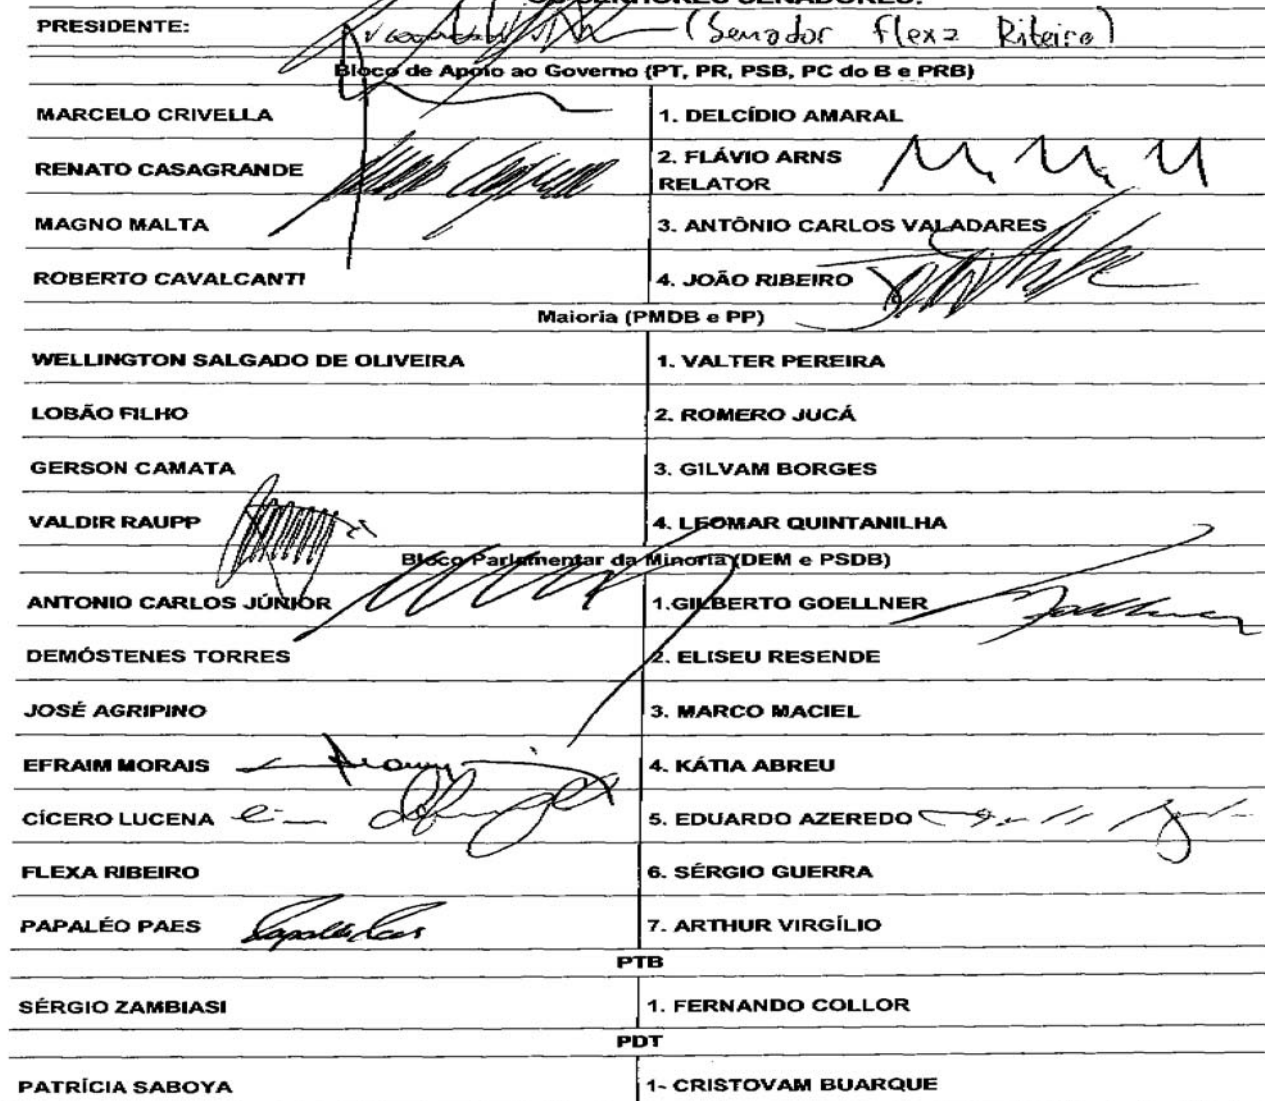 OS SENHORES SENADORES:
PRESIDENTE: (Senador Flexa Ribeiro)
Bloco de Apoio ao Governo (PT, PR, PSB, PC do B e PRB)
MARCELO CRIVELLA 1. DELCÍDIO AMARAL
RENATO CASAGRANDE 2. FLÁVIO ARNS
RELATOR
MAGNO MALTA 3. ANTÔNIO CARLOS VALADARES
ROBERTO CAVALCANTI 4. JOÃO RIBEIRO
Maioria (PMDB e PP)
WELLINGTON SALGADO DE OLIVEIRA 1. VALTER PEREIRA
LOBÃO FILHO 2. ROMERO JUCÁ
GERSON CAMATA 3. GILVAM BORGES
VALDIR RAUPP 4. LEOMAR QUINTANILHA
Bloco Parlamentar da Minoria (DEM e PSDB)
ANTONIO CARLOS JÚNIOR 1.GILBERTO GOELLNER
DEMÓSTENES TORRES 2. ELISEU RESENDE
JOSÉ AGRIPINO 3. MARCO MACIEL
EFRAIM MORAIS 4. KÁTIA ABREU
CÍCERO LUCENA 5. EDUARDO AZEREDO
FLEXA RIBEIRO 6. SÉRGIO GUERRA
PAPALÉO PAES Papaléo Paes 7. ARTHUR VIRGÍLIO
PTB
SÉRGIO ZAMBIASI 1. FERNANDO COLLOR
PDT
PATRÍCIA SABOYA 1- CRISTOVAM BUARQUE